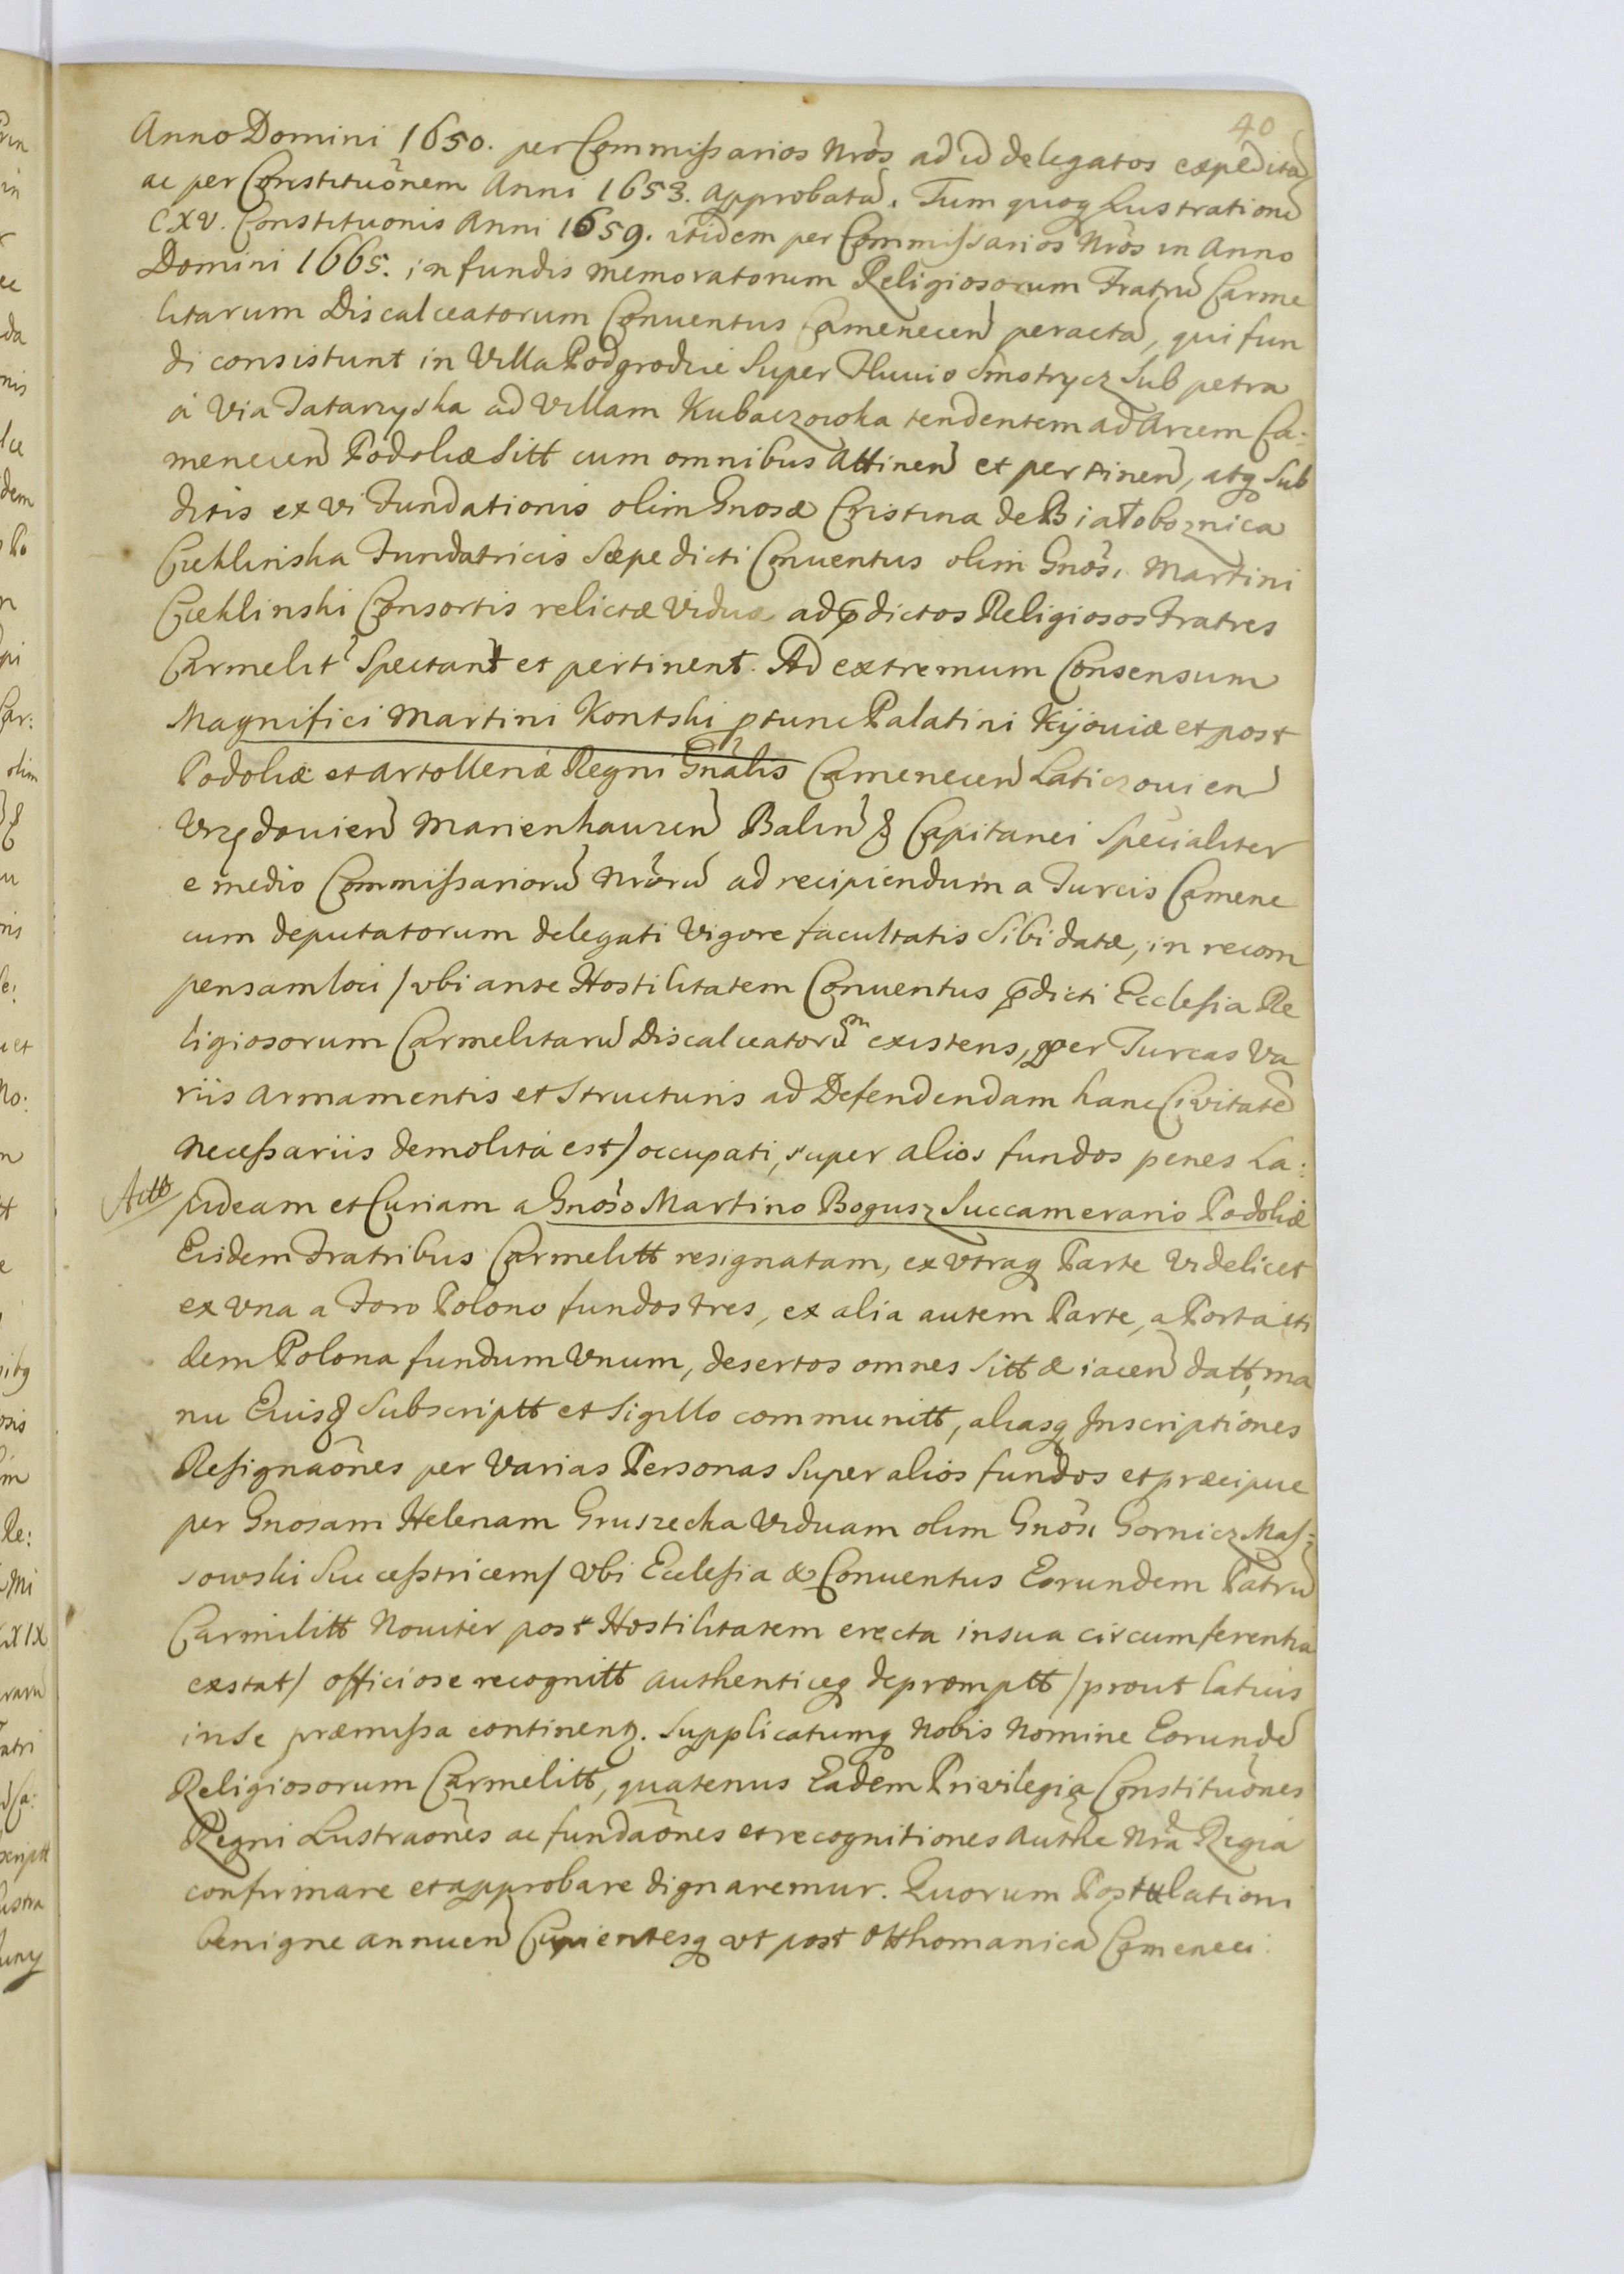 40
Anno Domini 1650. per Commissarios Nrõs ad id delegatos expeditã
ac per Constituõnem Anni 1653. approbatã. Tum quoq Lustrationẽ
CXV. Constituonis Anni 1659. itidem per Commissarios Nrõs in Anno
Domini 1665. in fundis memoratorum Religiosorum Fratrũ Carme
litarum Discalceatorum Conuentus Camenecen peractã, qui fun
di consistunt in Villa Podgrodzie Super Fluuio Smotrycz Sub petra
à Via Tatarzyska ad Villam Kubaczowka tendentem ad Arcem Ca:
menecen Podoliæ Sitt cum omnibus Attinen et pertinen, atq Sub
ditis ex vi Fundationis olim Gnosæ Cristina de Białoboznica
Czeklinska Fundatricis Sæpe dicti Conuentus olim Gnõsi Martini
Czeklinski Consortis relictæ Viduæ ad p̃dictos Religiosos Fratres
Carmelit Spectant et pertinent. Ad extremum Consensum
Magnifici Martini Kontski ptunc Palatini Kijouiæ et post
Podoliæ et Artolleriæ Regni Gñalis Camenecen Laticzouien
Vrzędouien Marienhauzen Balin & Capitanei Specialiter
e medio Commissariorũ Nrõrũ ad recipiendum a Turcis Camene
cum deputatorum delegati Vigore facultatis Sibi datæ, in recom
pensam loci / vbi ante Hostilitatem Conuentus p̃dicti Ecclesia Re
ligiosorum Carmelitarũ Discalceatorũm existens, per Turcas Va
riis armamentis et Structuris ad Defendendam hanc Civitatẽ
necessariis demolita est / occupati, super alios fundos penes La:
Actb pideam et Curiam a Gnõso Martino Bogusz Succamerario Podoliæ
Eisdem Fratribus Carmelitt resignatam, ex vtraq Parte Videlicet
ex vna a Foro Polono fundos tres, ex alia autem Parte, a Porta iti
dem Polona fundum Vnum, desertos omnes Sitt & iacen datt, ma
nu Eiusd Subscriptt et Sigillo communitt, aliasq Inscriptiones
Resignaõnes per Varias Personas Super alios fundos et præcipue
per Gnosam Helenam Gruszecka Viduam olim Gnõsi Gornicz Mas=
sowski Successtricem / Vbi Ecclesia & Conuentus Eorundem Patrũ
Carmilitt Nouiter post Hostilitatem erecta in sua circumferentia
exstat / officiose recognitt authenticeq depromptt / prout latius
in Se præmissa continentz. Supplicatumq Nobis Nomine Eorundẽ
Religiosorum Carmelitt, quatenus Eadem Privilegia Constituõnes
Regni Lustraõnes ac fundaõnes et recognitiones Authe Nrã Regia
confirmare et approbare dignaremur. Quorum Postulationi
benigne annuen Cupientesq vt post Otthomanicã Cameneci: